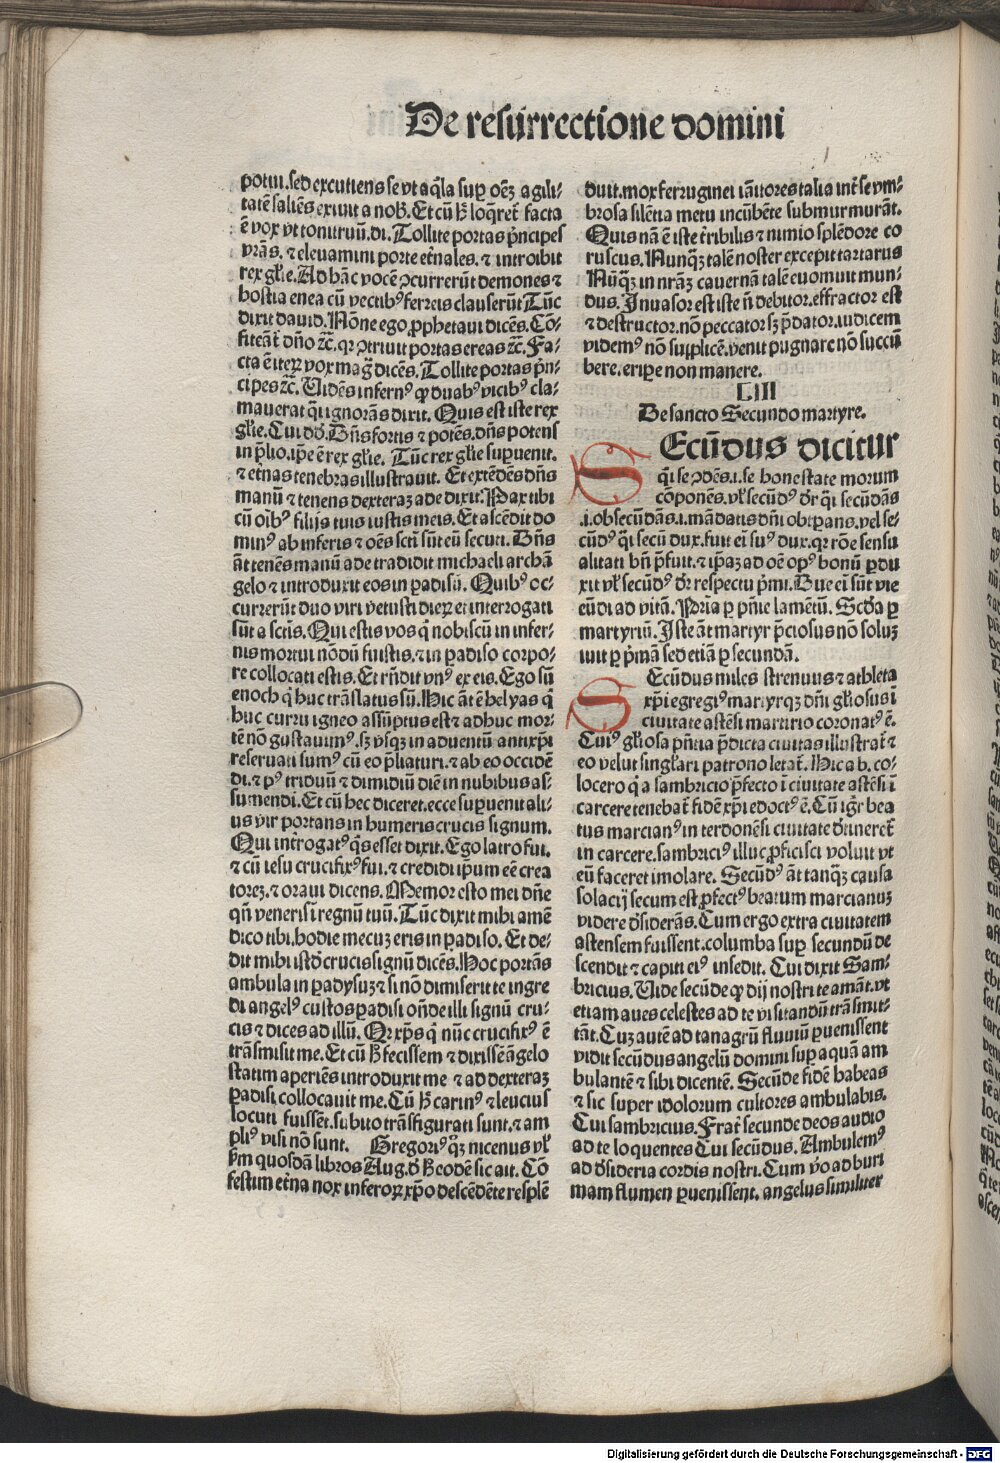 De resurrectione domini
potui. sed excutiens se vt aq̄la suꝑ oēꝫ agili-
tatē saliēs exiuit a nob̄. Et cū h̄ loq̄ret̄ facta
ē vox vt tonitruū. di. Tollite portas p̄ncipes
vrās. ⁊ eleuamini porte et̄nales. ⁊ introibit
rex gl̄ie. Ad hāc vocē ↄcurrerūt demones ⁊
hostia enea cū vectibꝰ ferreis clauserūt Tūc
dixit dauid. Nōne ego ꝓphetaui dicēs. Cō-
fiteāt̄ dn̄o ⁊c̄. qꝛ ↄtriuit portas ereas ⁊c̄. Fa-
cta ē iteꝝ vox maḡ dicēs. Tollite portas p̄n-
cipes ⁊c̄. Uidēs infernꝰ ꝙ duabꝰ vicibꝰ cla-
mauerat q̄si ignorās dixit. Quis est iste rex
gl̄ie. Cui dd̄. Dn̄s fortis ⁊ potēs. dn̄s potens
in p̄lio. ip̄e ē rex gl̄ie. Tūc rex gl̄ie suꝑuenit.
⁊ et̄nas tenebras illustrauit. Et extēdēs dn̄s
manū ⁊ tenens dexteraꝫ ade dixit. Pax tibi
cū oībꝰ filijs tuis iustis meis. Et ascēdit do
minꝰ ab inferis ⁊ oēs sctī sūt eū secuti. Dn̄s
āt tenēs manū ade tradidit michaeli archā
gelo ⁊ introduxit eos in ꝑadisū. Quibꝰ oc-
currerūt duo viri vetusti dieꝝ ⁊ interrogati
sūt a sctīs. Qui estis vos q̄ nobiscū in infer-
nis mortui nōdū fuistis. ⁊ in ꝑadiso corpo-
re collocati estis. Et rn̄dit vnꝰ ex eis. Ego sū
enoch q̄ huc trāslatus sū. Hic āt ē helyas q̄
huc curru igneo assūptus est ⁊ adhuc mor-
tē nō gustauimꝰ. sꝫ vsqꝫ in aduentū antixp̄i
reseruati sumꝰ cū eo p̄liaturi. ⁊ ab eo occidē
di. ⁊ pꝰ triduū ⁊ dimidiū diē in nubibus as-
sumendi. Et cū hec diceret. ecce suꝑuenit ali-
us vir portans in humeris crucis signum.
Qui int̄rogatꝰ q̄s esset dixit. Ego latro fui.
⁊ cū iesu crucifixꝰ fui. ⁊ credidi ip̄um eē crea
toreꝫ. ⁊ oraui dicens. Memor esto mei dn̄e
qn̄ veneris ī regnū tuū. Tūc dixit mihi amē
dico tibi. hodie mecuꝫ eris in ꝑadiso. Et de-
dit mihi istd̄ crucis signū dicēs. Hoc portās
ambula in ꝑadysuꝫ ⁊ si nō dimiserit te ingre
di angelꝰ custos ꝑadisi on̄de illi signū cru-
cis ⁊ dices ad illū. Qꝛ xp̄s q̄ nūc crucifixꝰ ē
trāsmisit me. Et cū h̄ fecissem ⁊ dixissē āgelo
statim aperiēs introduxit me ⁊ ad dexteraꝫ
ꝑadisi collocauit me. Cū h̄ carinꝰ ⁊ leucius
locuti fuissēt. subito trāsfigurati sunt. ⁊ am
pliꝰ visi nō sunt. Gregoriꝰ qꝫ nicenus vl̄
ẜm quosdā libros Aug. d̄ h̄ eodē sic ait. Cō
festim et̄na nox inferoꝝ xp̄o descēdēte resplē
duit. mox ferruginei iāitores talia int̄ se vm-
brosa silētia metu incūbēte submurmurāt.
Quis nā ē iste t̄ribilis ⁊ nimio splēdore co
ruscus. Nunqꝫ talē noster excepit tartarus
Nūqꝫ in nrāꝫ cauernā talē euomuit mun-
dus. Inuasor est iste nō debitor. effractor est
⁊ destructor. nō peccator sꝫ p̄dator. iudicem
videmꝰ nō supplicē. venit pugnare nō succū
bere. eripe non manere.
LIII
De sancto Secundo martyre.
SEcūdus dicitur
q̄si se ↄdēs. i. se honestate morum
cōponēs. vl̄ secūdꝰ dr̄ q̄si secūdās
.i. obsecūdās. i. mādatis dn̄i obtꝑans. vel se-
cūdꝰ q̄si secū dux. fuit ei suꝰ dux. qꝛ rōe sensu
alitati bn̄ p̄fuit. ⁊ ip̄aꝫ ad oē opꝰ bonū ꝑdu
xit vl̄ secūdꝰ dr̄ respectu p̄mi. Due ei sūt vie
eūdi ad vitā. Prīa ꝑ pn̄ie lamētū. Scd̄a ꝑ
martyriū. Iste āt martyr p̄ciosus nō soluꝫ
iuit ꝑ p̄mā sed etiā ꝑ secundā.
SEcūdus miles strenuus ⁊ athleta
xp̄i egregiꝰ martyrqꝫ dn̄i gl̄iosus ī
ciuitate astēsi martirio coronatꝰ ē.
Cuiꝰ gl̄iosa pn̄tia p̄dicta ciuitas illustrat̄ ⁊
eo velut singl̄ari patrono letat̄. Hic a b. co-
locero q̄ a sambricio p̄fecto ī ciuitate astēsi ī
carcere tenebat̄ fidē xp̄i edoctꝰ ē. Cū igr̄ bea
tus marcianꝰ in terdonēsi ciuitate d̄tineret̄
in carcere. sambriciꝰ illuc ꝓficisci voluit vt
eū faceret imolare. Secūdꝰ āt tanqꝫ causa
solacij secum est ꝓfectꝰ beatum marcianuꝫ
videre d̄siderās. Cum ergo extra ciuitatem
astensem fuissent. columba suꝑ secundū de
scendit ⁊ capiti eiꝰ insedit. Cui dixit Sam-
bricius. Uide secūde ꝙ dij nostri te amāt. vt
etiam aues celestes ad te visitandū trāsmit-
tāt. Cuꝫ autē ad tanagrū fluuiū ꝑuenissent
vidit secūdus angelū domini suꝑ aquā am
bulantē ⁊ sibi dicentē. Secūde fidē habeas
⁊ sic super idolorum cultores ambulabis.
Cui sambricius. Frat̄ secunde deos audio
ad te loquentes Cui secūdus. Ambulemꝰ
ad d̄sideria cordis nostri. Cum v̄o ad buri
mam flumen ꝑuenissent. angelus similiter
Digitalisierung gefördert durch die Deutsche Forschungsgemeinschaft - DFG